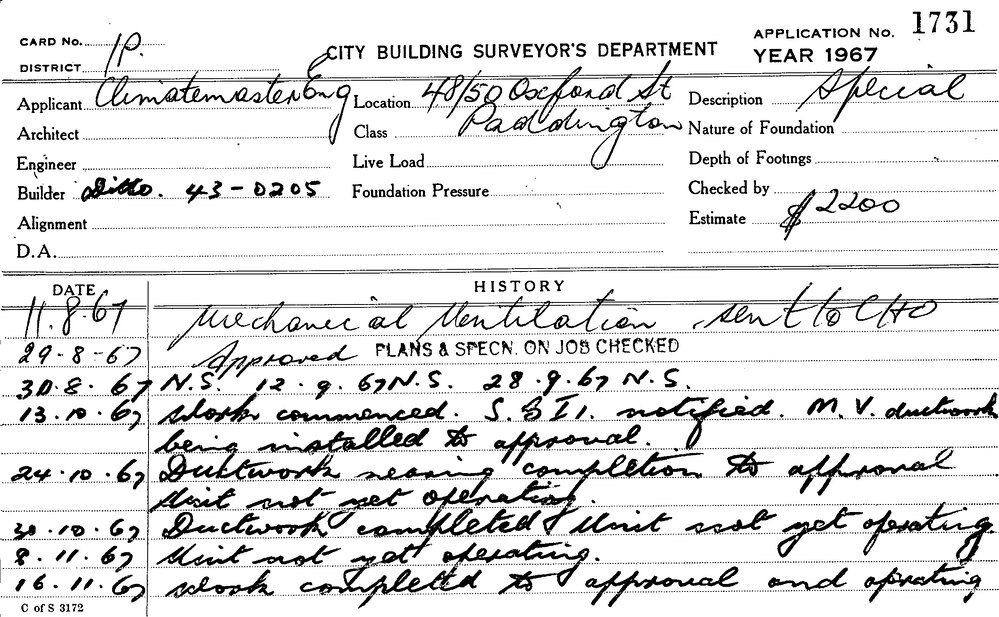 CARD No. 1P. CITY BUILDING SURVEYOR'S DEPARTMENT APPLICATION No. 1731
DISTRICT YEAR 1967
Applicant Climatemaster Eng Location 48/50 Oxford St Description Special
Architect Class Paddington Nature of Foundation
Engineer Live Load Depth of Footings
Builder Ditto. 43-0205 Foundation Pressure Checked by
Alignment Estimate $2200
D.A.
DATE HISTORY
11.8.67 Mechanical Ventilation sent to CHO
29-8-67 Approved PLANS & SPECN. ON JOB CHECKED
30.8.67 N.S. 12.9.67 N.S. 28.9.67 N.S.
13.10.67 Work commenced. S.B.I. notified. M.V. ductwork
being installed to approval.
24.10.67 Ductwork nearing completion to approval
Unit not yet operating.
30.10.67 Ductwork completed Unit not yet operating.
8.11.67 Unit not yet operating.
16.11.67 Work completed to approval and operating
C of S 3172